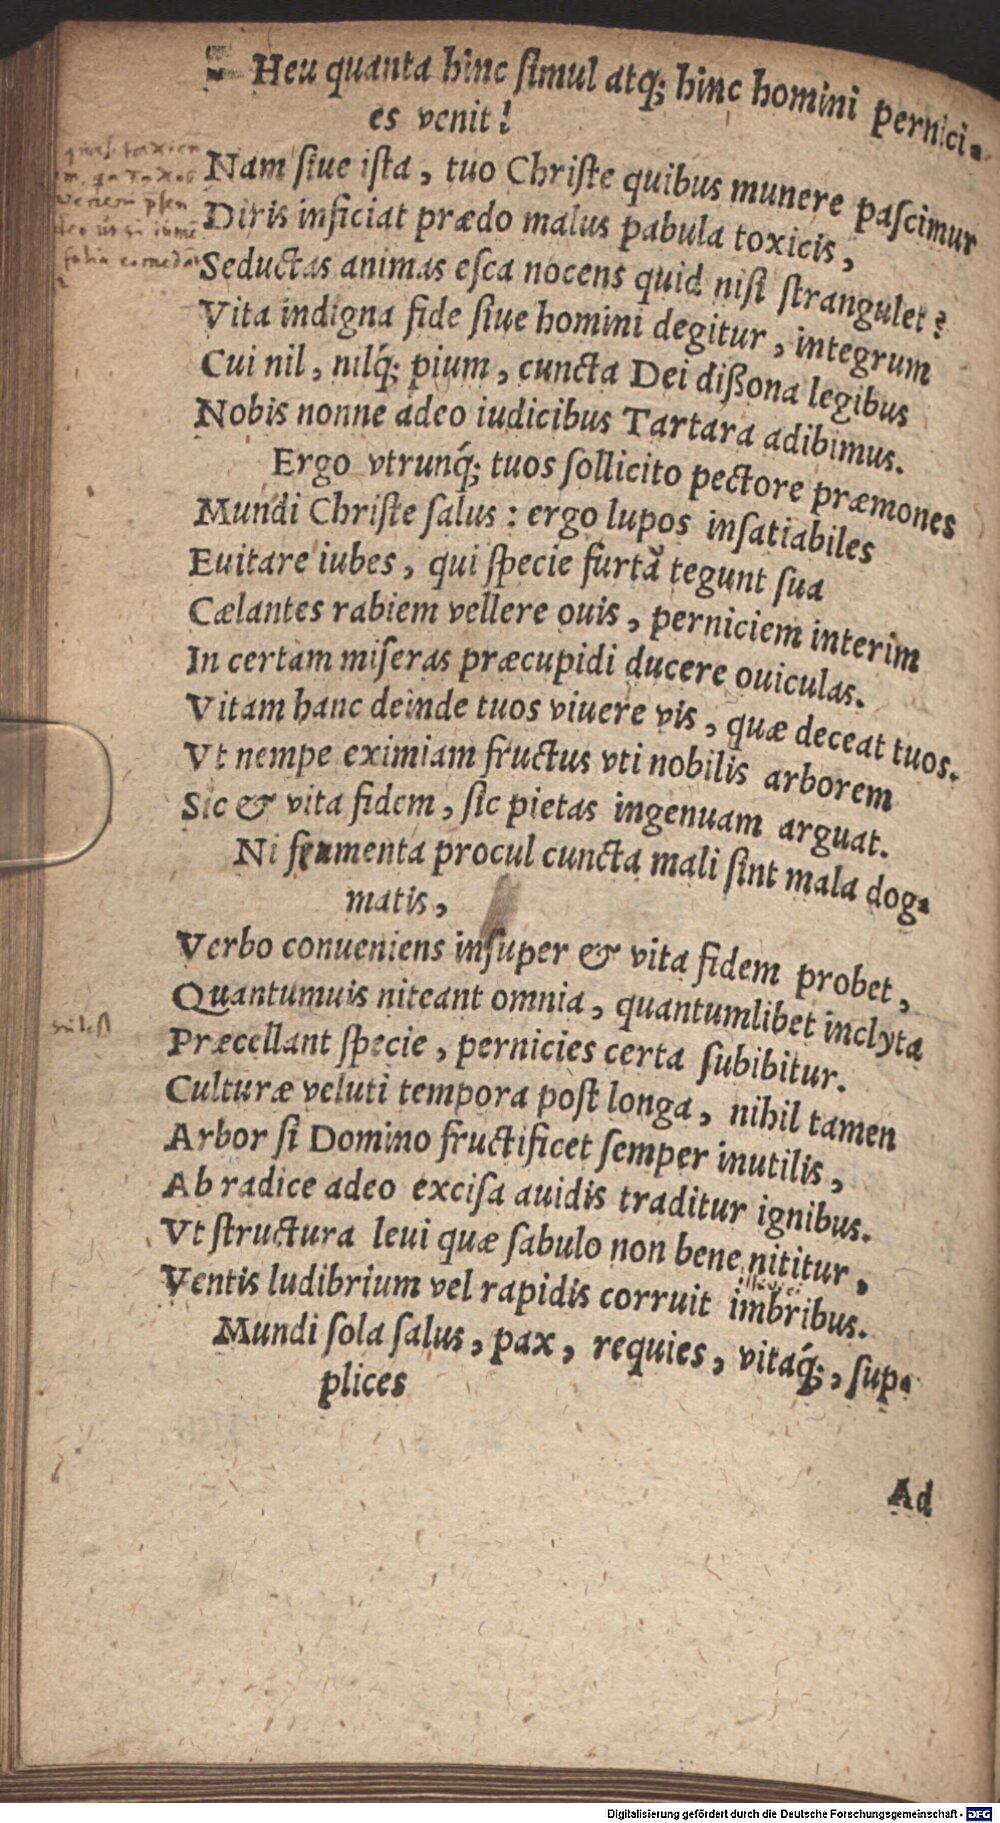 Heu quanta hinc ſimul atq́; hinc homini pernici-
es venit!
Nam ſiue iſta, tuo Chriſte quibus munere paſcimur
Diris inficiat prædo malus pabula toxicis,
Seductas animas eſca nocens quid niſi ſtrangulet?
Vita indigna fide ſiue homini degitur, integrum
Cui nil, nilq́; pium, cuncta Dei dißona legibus
Nobis nonne adeo iudicibus Tartara adibimus.
Ergo vtrunq́; tuos ſollicito pectore præmones
Mundi Chriſte ſalus: ergo lupos inſatiabiles
Euitare iubes, qui ſpecie furta tegunt ſua
Cælantes rabiem vellere ouis, perniciem interim
In certam miſeras præcupidi ducere ouiculas.
Vitam hanc deinde tuos viuere vis, quæ deceat tuos.
Vt nempe eximiam fructus vti nobilis arborem
Sic & vita fidem, ſic pietas ingenuam arguat.
Ni fermenta procul cuncta mali ſint mala dog-
matis,
Verbo conueniens inſuper & vita fidem probet,
Quantumuis niteant omnia, quantumlibet inclyta
Præcellant ſpecie, pernicies certa ſubibitur.
Culturæ veluti tempora poſt longa, nihil tamen
Arbor ſi Domino fructificet ſemper inutilis,
Ab radice adeo exciſa auidis traditur ignibus.
Vt ſtructura leui quæ ſabulo non bene nititur,
Ventis ludibrium vel rapidis corruit imbribus.
Mundi ſola ſalus, pax, requies, vitaq́;, ſup-
plices
Ad
Digitalisierung gefördert durch die Deutsche Forschungsgemeinschaft - DFG